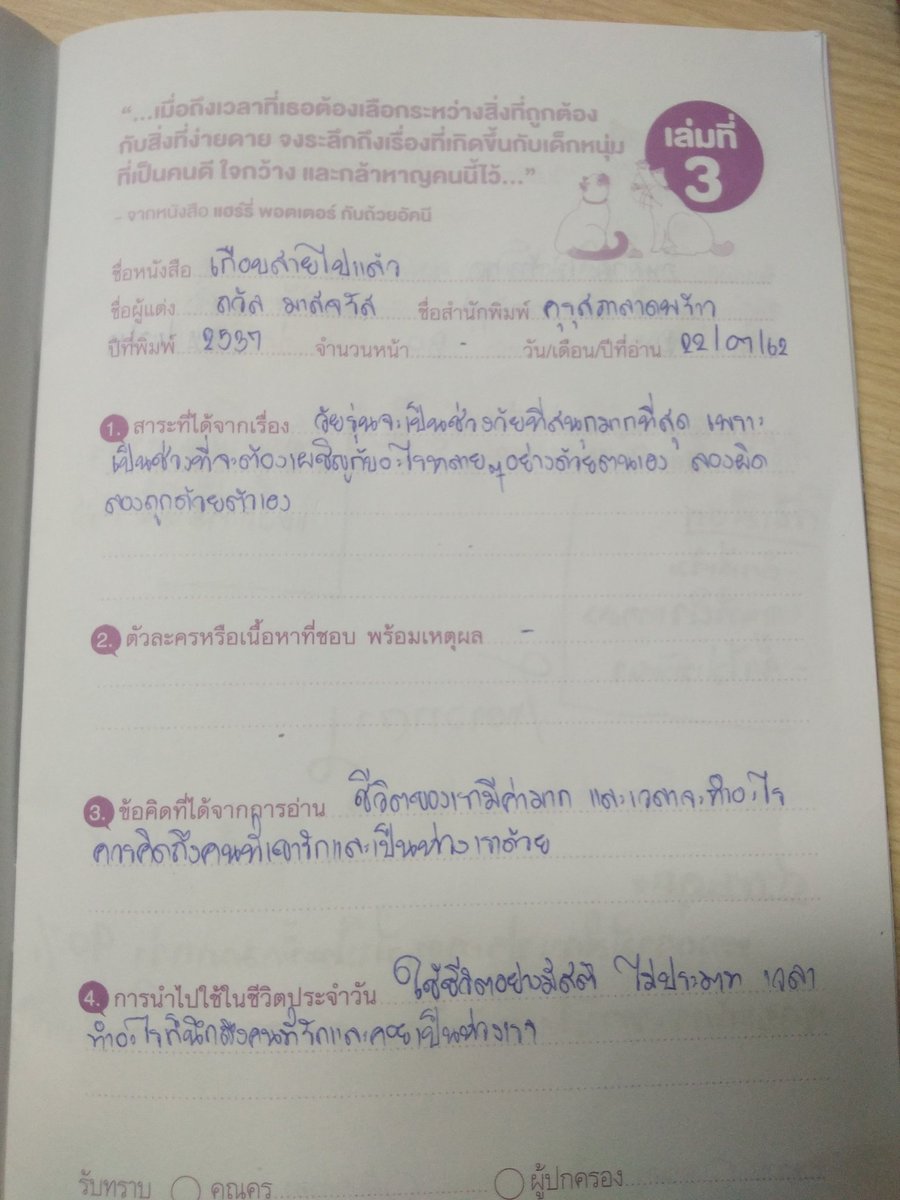 "...เมื่อถึงเวลาที่เธอต้องเลือกระหว่างสิ่งที่ถูกต้อง
กับสิ่งที่ง่ายดาย จงระลึกถึงเรื่องที่เกิดขึ้นกับเด็กหนุ่ม
ที่เป็นคนดี ใจกว้าง และกล้าหาญคนนี้ไว้..."
- จากหนังสือ แฮร์รี่ พอตเตอร์ กับถ้วยอัคนี
เล่มที่
3
ชื่อหนังสือ เกือบสายไปแล้ว
ชื่อผู้แต่ง ถวัล มาศจรัส ชื่อสำนักพิมพ์ คุรุสภาลาดพร้าว
ปีที่พิมพ์ 2537 จำนวนหน้า - วัน/เดือน/ปีที่อ่าน 22/07/62
1. สาระที่ได้จากเรื่อง วัยรุ่นจะเป็นช่วงวัยที่สนุกมากที่สุด เพราะ
เป็นช่วงที่จะต้องเผชิญกับอะไรหลายๆอย่างด้วยตนเอง ลองผิด
ลองถูกด้วยตัวเอง
2. ตัวละครหรือเนื้อหาที่ชอบ พร้อมเหตุผล -
3. ข้อคิดที่ได้จากการอ่าน ชีวิตของเรามีค่ามาก และเวลาจะทำอะไร
ควรคิดถึงคนที่เขารักและเป็นห่วงเราด้วย
4. การนำไปใช้ในชีวิตประจำวัน ใช้ชีวิตอย่างมีสติ ไม่ประมาท เวลา
ทำอะไรก็นึกถึงคนที่รักและคอยเป็นห่วงเรา
รับทราบ คุณครู ผู้ปกครอง